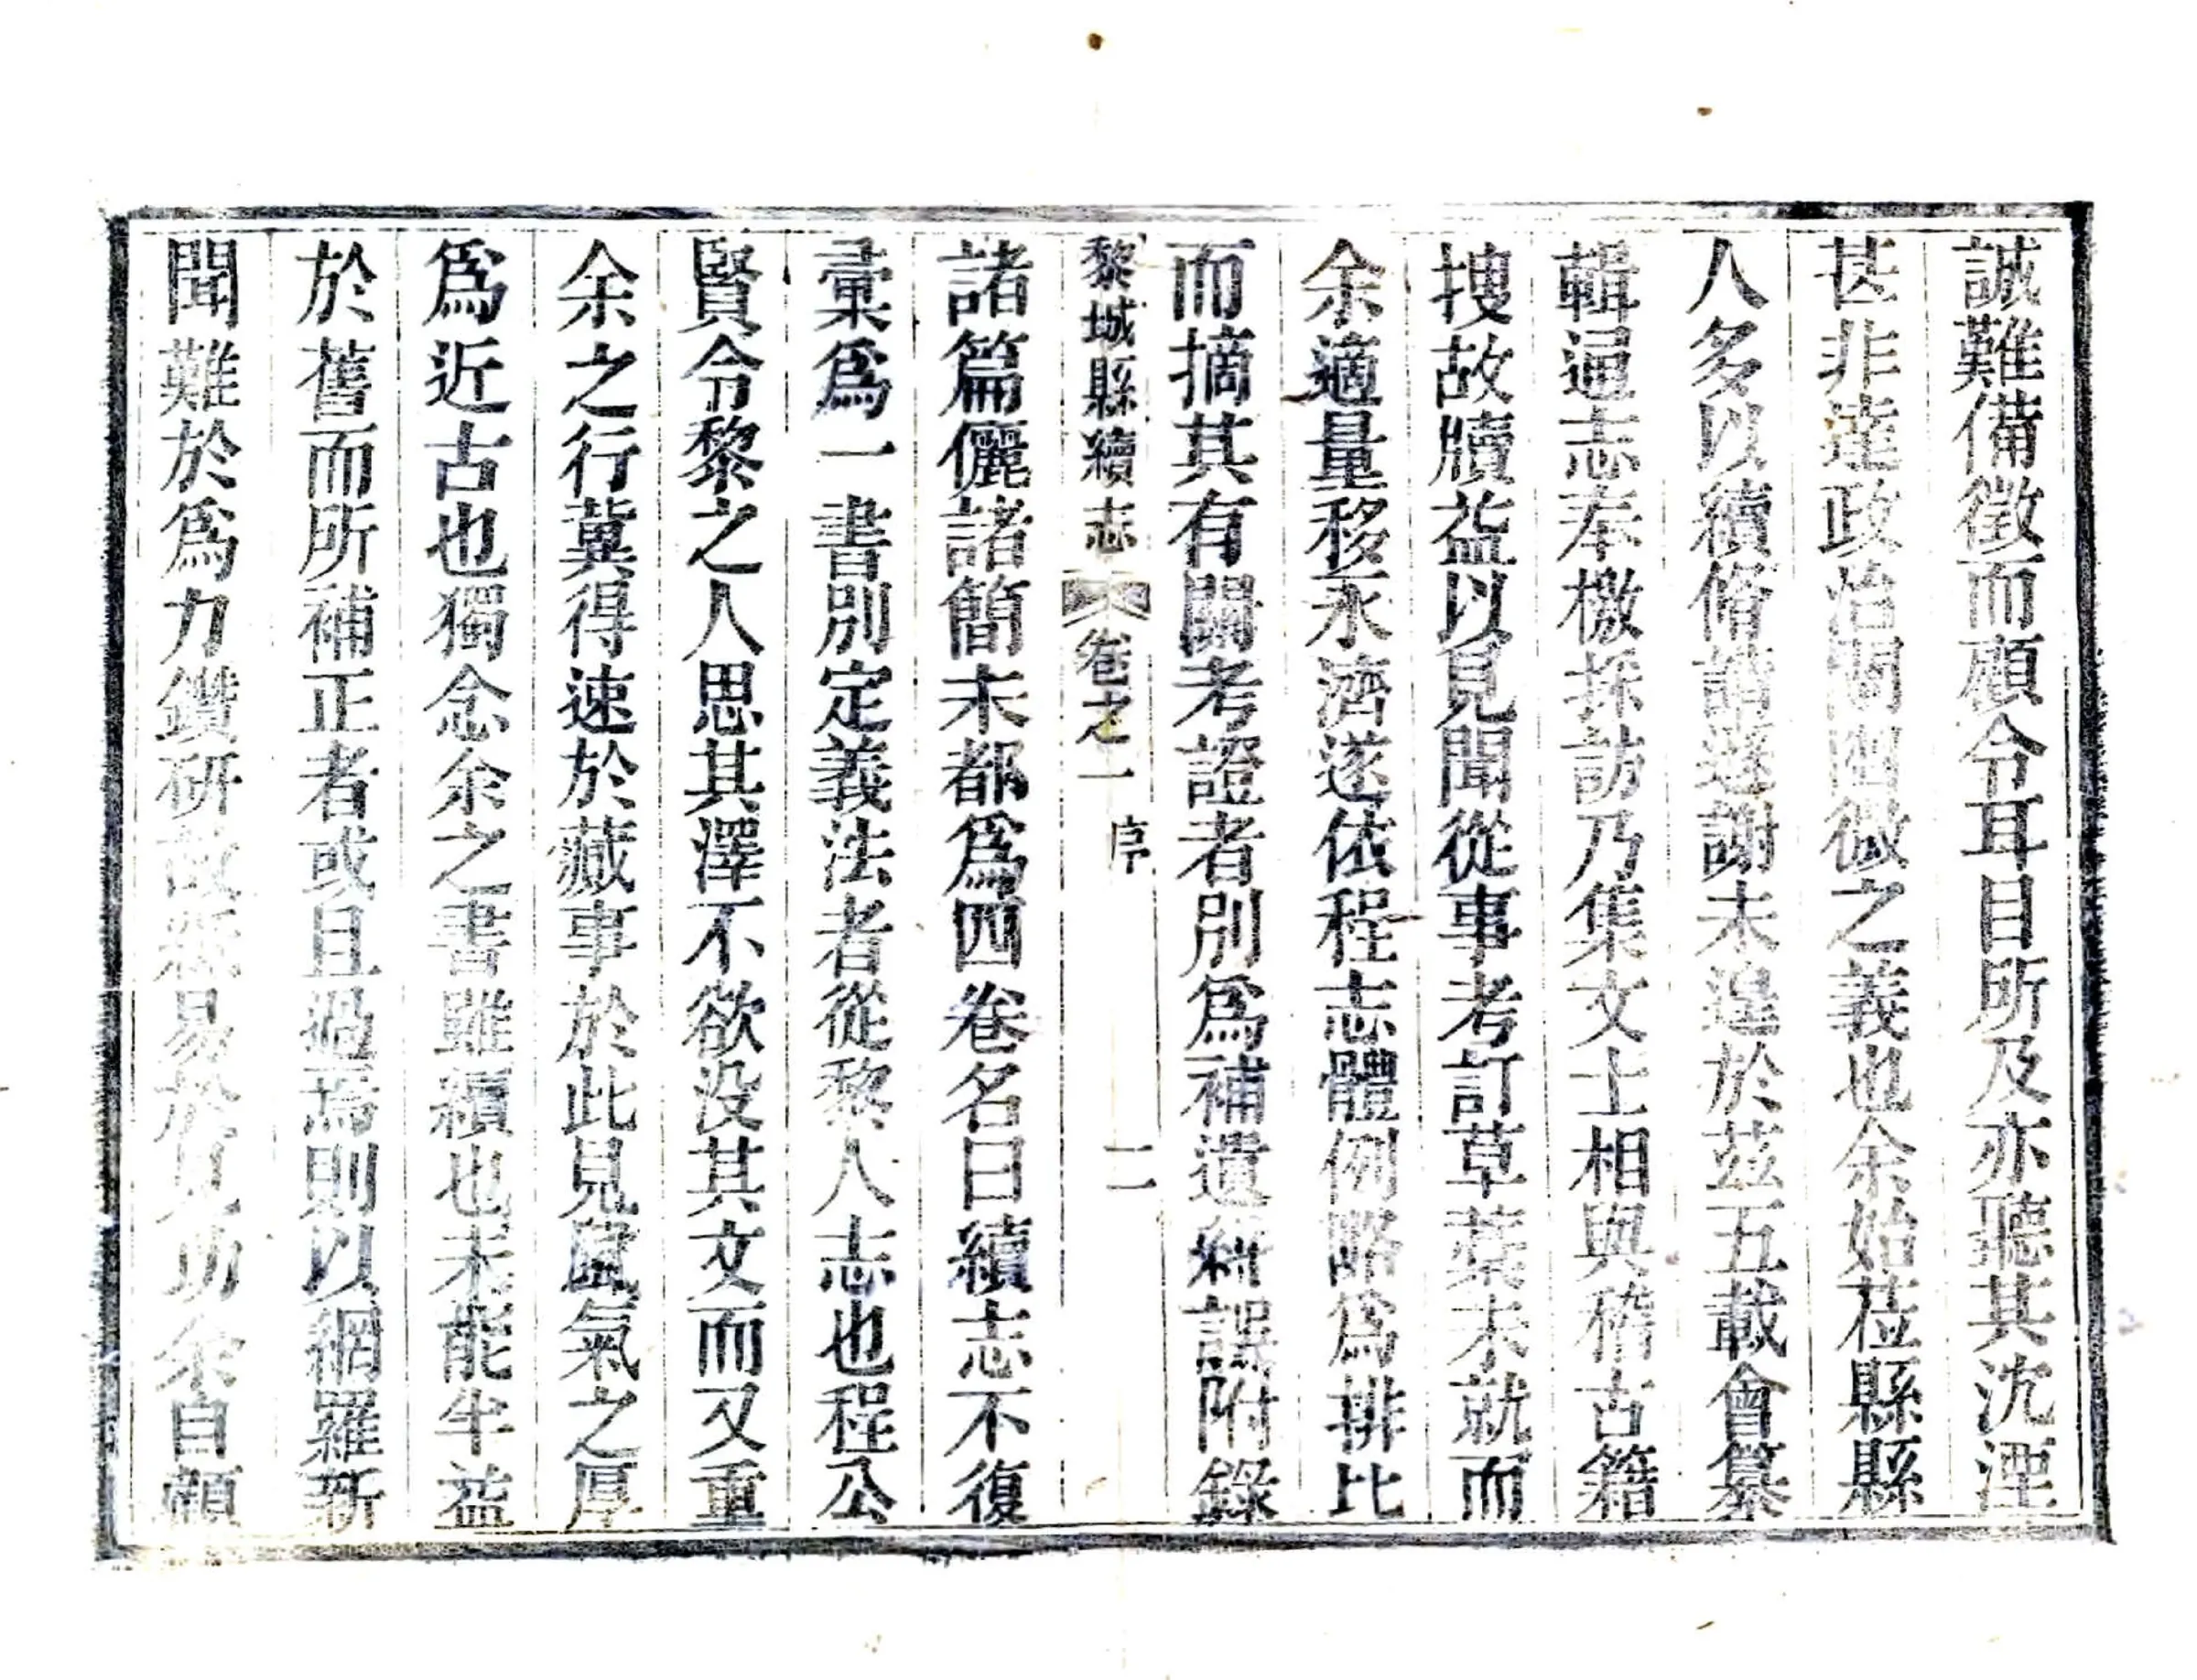 誠難備徵而顧令耳目所及亦聽其沈湮
甚非達政治闡幽微之義也余始莅縣縣
人多以續脩請遜謝未遑於茲五載會纂
輯通志奉檄採訪乃集文士相與稽古籍
搜故牘益以見聞從事考訂草藁未就而
余適量移永濟遂依程志體例略爲排比
而摘其有關考證者別爲補遺糾誤附錄
黎城縣續志 卷之一 序 二
諸篇儷諸簡末都爲四卷名曰續志不復
彙爲一書別定義法者從黎人志也程公
賢令黎之人思其澤不欲没其文而又重
余之行冀得速於蕆事於此見風氣之厚
爲近古也獨念余之書雖續也未能半益
於舊而所補正者或且過焉則以網羅新
聞難於爲力鑽研故紙易於見功余自顧